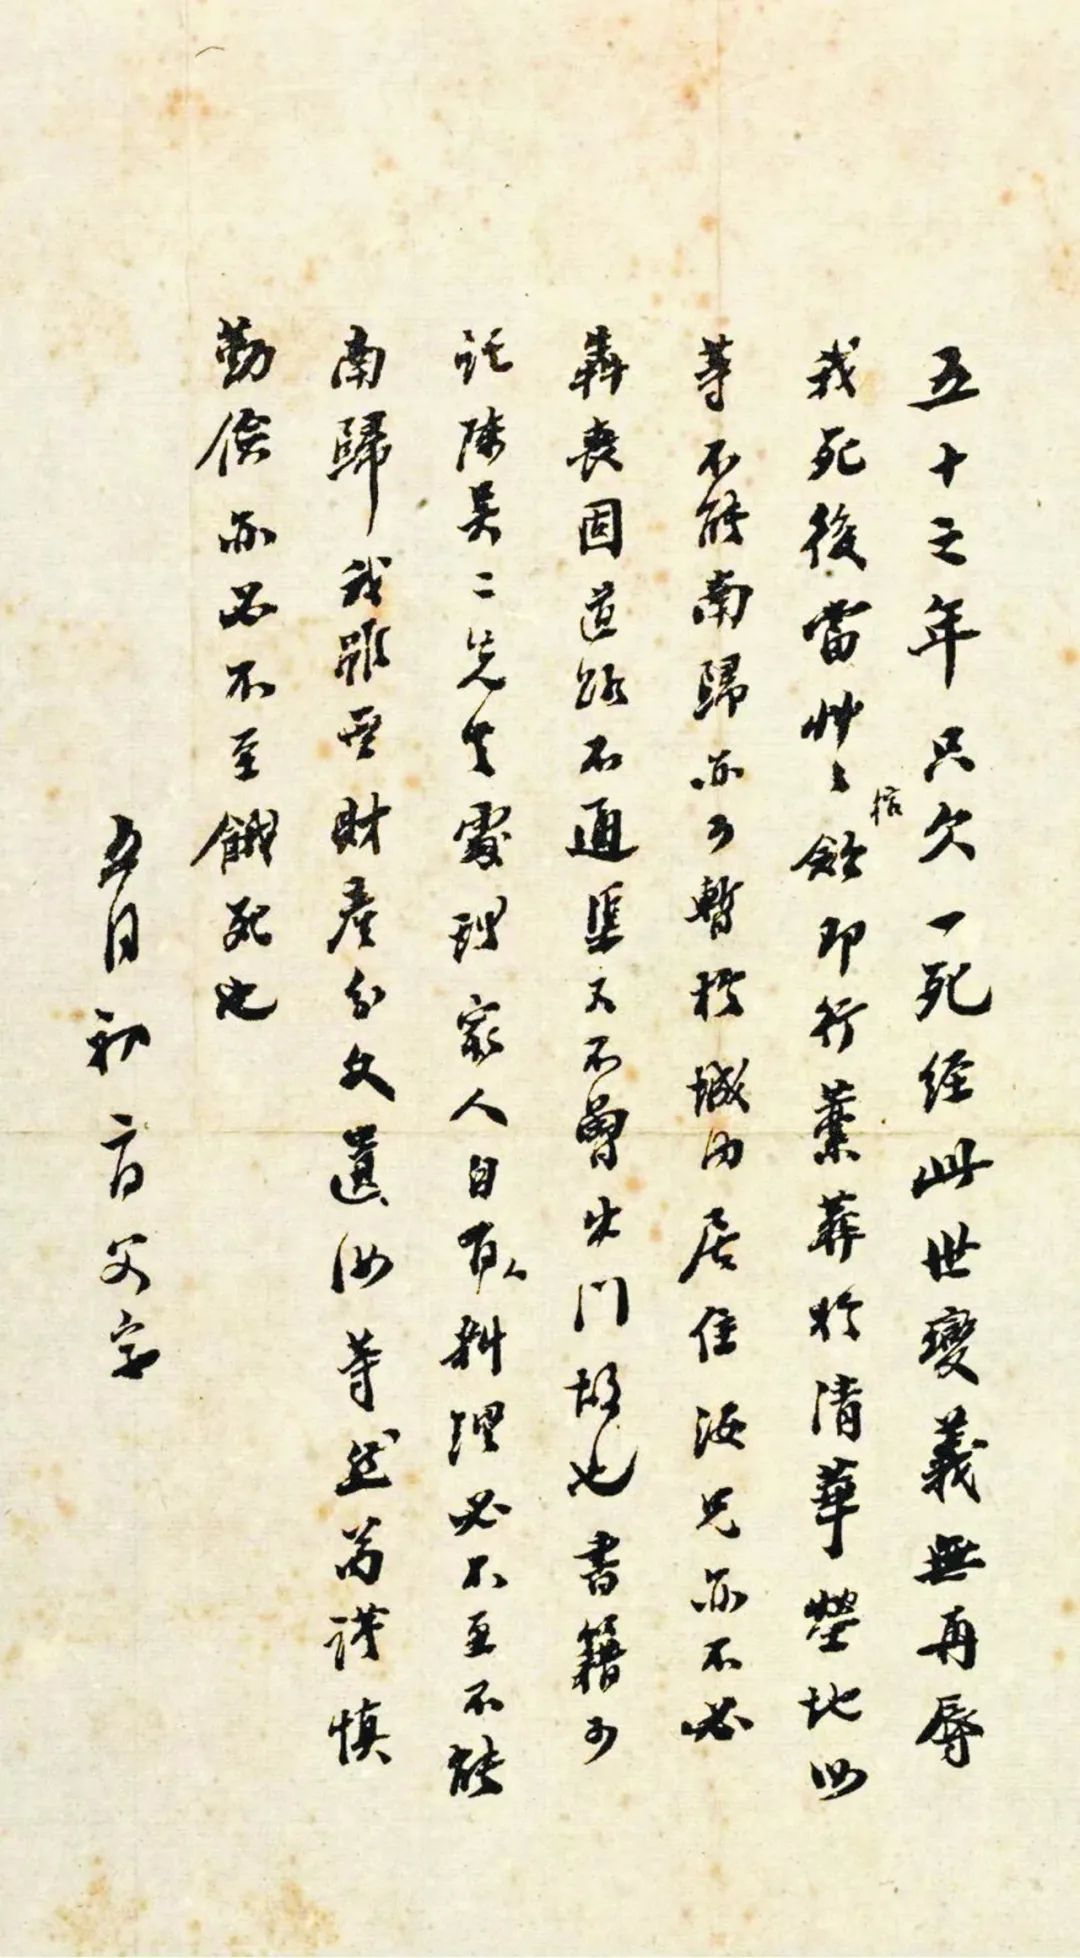 五十之年只欠一死經此世變義無再辱
我死後當艸〻棺斂即行藁葬於清華塋地汝
等不能南歸亦可暫於城內居住汝兄亦不必
奔喪因道路不通渠又不曾出門故也書籍可
託陳吳二先生處理家人自有人料理必不至不能
南歸我雖無財產分文遺汝等然苟謹慎
勤儉亦必不至餓死也
五月初二日父字